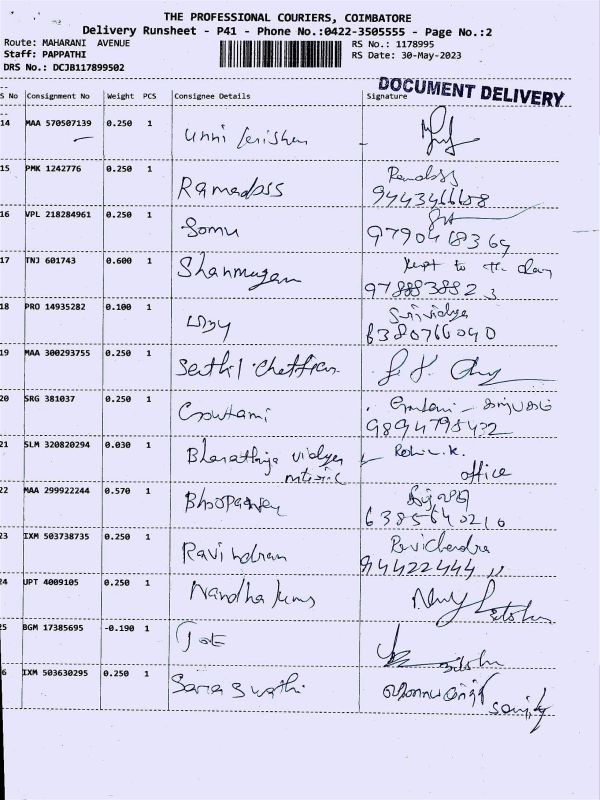 THE PROFESSIONAL COURIERS, COIMBATORE
Delivery Runsheet - P41 - Phone No.:0422-3505555 - Page No.:2
Route: MAHARANI AVENUE
RS No.: 1178995
Staff: PAPPATHI
RS Date: 30-May-2023
DRS No.: DCJB117899502
DOCUMENT DELIVERY
S No Consignment No Weight PCS Consignee Details Signature
14 MAA 570507139 0.250 1 Unni
15 PMK 1242776 0.250 1 Ramadoss Ramdoss
9443466608
16 VPL 218284961 0.250 1 Somu
9790468369
17 TNJ 601743 0.600 1 Shanmugam kept to the
9788838823
18 PRO 14935282 0.100 1 Srividya
6380766040
19 MAA 300293755 0.250 1 Senthil Chettiar
20 SRG 381037 0.250 1 Gowtami
9894795432
21 SLM 320820294 0.030 1 Bharathiya vidya
office
22 MAA 299922244 0.570 1
6385640210
23 IXM 503738735 0.250 1 Ravindran Ravichandra
9442244411
24 UPT 4009105 0.250 1 Nandha kumar
25 BGM 17385695 -0.190 1 Joe
26 IXM 503630295 0.250 1 Saraswathi